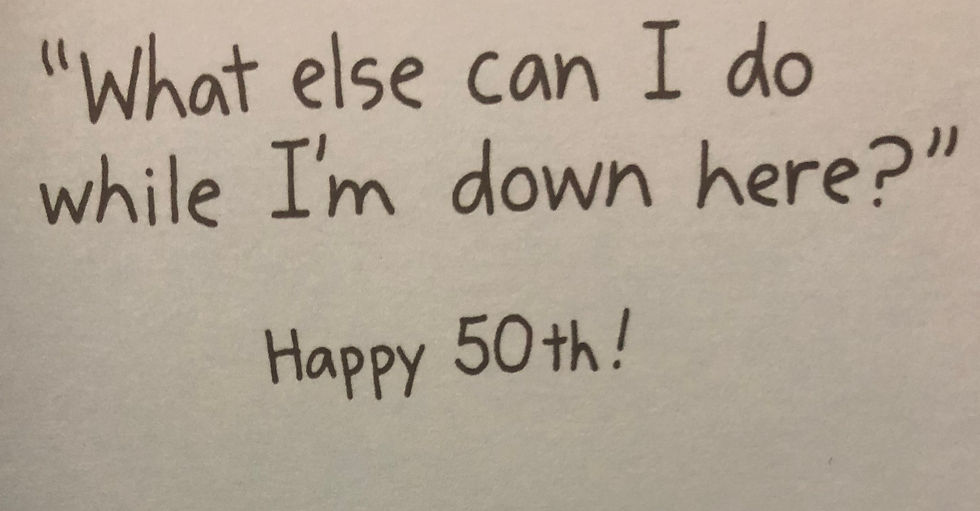 “What else can I do
while I'm down here?”
Happy 50th!